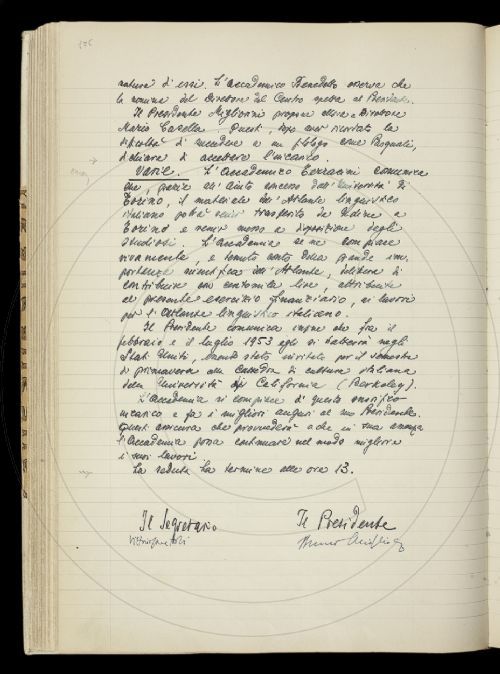 natura di essi. L'Accademico Benedetto osserva che
la nomina del Direttore del Centro spetta al Presidente.
Il Presidente Migliorini propone allora a Direttore
Mario Casella. Questi, dopo aver ricordato la
difficoltà di succedere a un filologo come Pasquali,
dichiara di accettare l'incarico.
Varie. L'Accademico Terracini comunica
che, grazie all'aiuto concesso dall'Università di
Torino, il materiale dell'Atlante linguistico
italiano potrà venir trasferito da Udine a
Torino e venir messo a disposizione degli
studiosi. L'Accademia se ne compiace
vivamente, e tenuto conto della grande im-
portanza scientifica dell'Atlante, delibera di
contribuire con centomila lire, attribuite
al presente esercizio finanziario, ai lavori
per l'Atlante linguistico italiano.
Il Presidente comunica infine che fra il
febbraio e il luglio 1953 egli si tratterrà negli
Stati Uniti, essendo stato invitato per il semestre
di primavera alla Cattedra di cultura italiana
della Università di California (Berkeley).
L'Accademia si compiace di questo onorifico
incarico e fa i migliori auguri al suo Presidente.
Questi assicura che provvederà a che in sua assenza
l'Accademia possa continuare nel modo migliore
i suoi lavori.
La seduta ha termine alle ore 13.
Il Segretario
Il Presidente
Bruno Migliorini